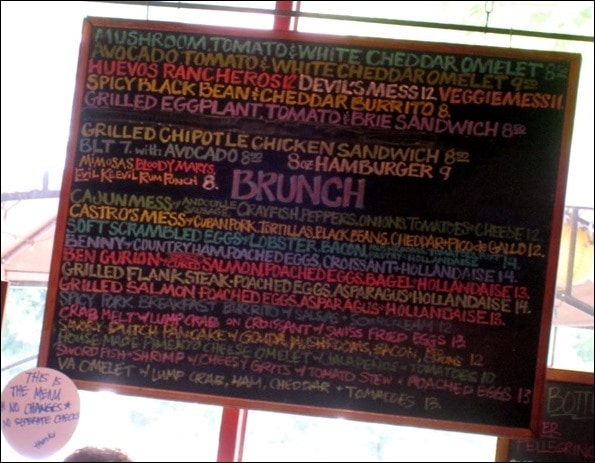 MUSHROOM, TOMATO & WHITE CHEDDAR OMELET 8.50
AVOCADO TOMATO & WHITE CHEDDAR OMELET 9.50
HUEVOS RANCHEROS 12. DEVIL'S MESS 12. VEGGIE MESS 11.
SPICY BLACK BEAN & CHEDDAR BURRITO 8.
GRILLED EGGPLANT, TOMATO & BRIE SANDWICH 8.50
GRILLED CHIPOTLE CHICKEN SANDWICH 8.50
BLT 7. with AVOCADO 8.50 8 oz HAMBURGER 9
MIMOSAS, BLOODY MARYS,
EVIL KEEVIL RUM PUNCH 8.
BRUNCH
CAJUN MESS w/ ANDOUILLE SAUSAGE, CRAYFISH, PEPPERS, ONIONS, TOMATOES & CHEESE 12.
CASTRO'S MESS w/ CUBAN PORK, TORTILLAS, BLACK BEANS, CHEDDAR + PICO de GALLO 12.
SOFT SCRAMBLED EGGS w/ LOBSTER, BACON, 14.
BENNY w/ COUNTRY HAM, POACHED EGGS, CROISSANT + HOLLANDAISE 14.
BEN GURION w/ SALMON, POACHED EGGS, BAGEL + HOLLANDAISE 13.
GRILLED FLANK STEAK, POACHED EGGS, ASPARAGUS + HOLLANDAISE 14.
GRILLED SALMON, POACHED EGGS, ASPARAGUS + HOLLANDAISE 13.
SPICY PORK BREAKFAST BURRITO w/ SALSA + SOUR CREAM 12
CRAB MELT w/ LUMP CRAB ON CROISSANT w/ SWISS FRIED EGGS 13
SAVORY DUTCH PANCAKE w/ GOUDA, MUSHROOMS, BACON, 12
HOUSE MADE PIMENTO CHEESE OMELET w/ JALAPENOS + TOMATOES 10
SWORDFISH + SHRIMP w/ CHEESY GRITS w/ TOMATO STEW + POACHED EGGS 13
VA OMELET w/ LUMP CRAB, HAM, CHEDDAR + TOMATOES 13.
THIS IS
THE MENU
* NO CHANGES *
NO SEPARATE CHECKS
thanks
BOTT
ER
PELLEGRIN